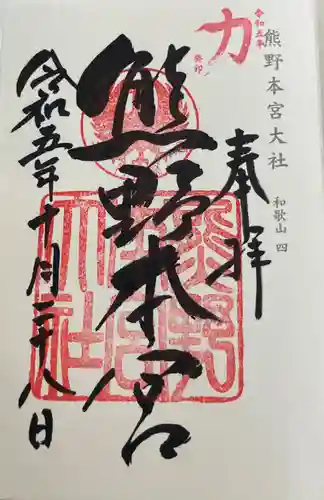 熊野本宮大社
和歌山 四
令和五年
力
癸卯
奉拝
熊野本宮
令和五年十月二十八日
熊野本宮大社